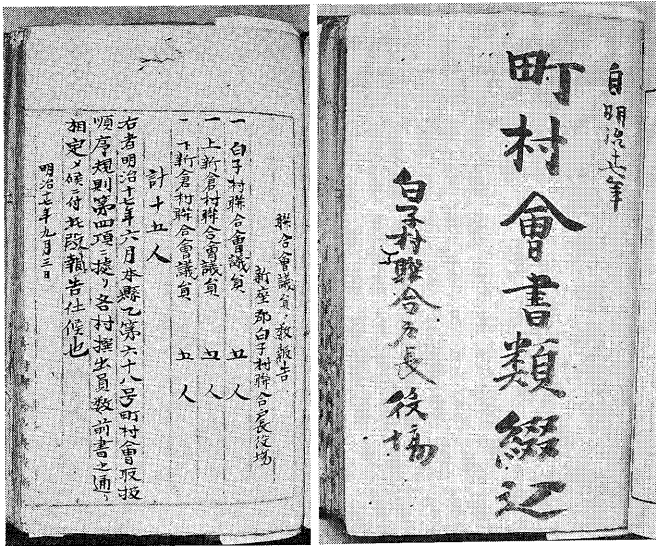 自明治十七年
町村會書類綴込
白子村聯合戸長役場
聯合會議員ノ数報告
新座郡白子村聯合戸長役場
一 白子村聯合會議員 五人
一 上新倉村聯合會議員 五人
一 下新倉村聯合會議員 五人
計十五人
右者明治十七年六月本縣乙第六十八号町村會取扱
順序規則第四項ニ據リ各村撰出員数前書之通リ
相定メ候ニ付此段報告仕候也
明治十七年九月三日